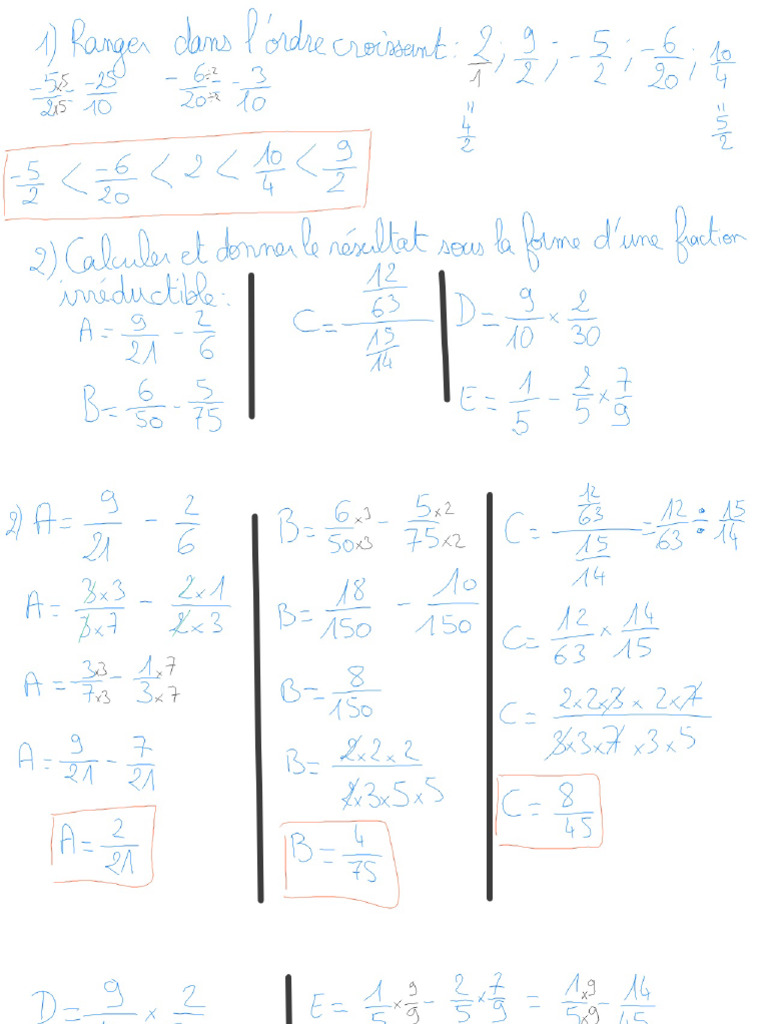 1) Ranger dans l'ordre croissant : 2/1 ; 9/2 ; -5/2 ; -6/20 ; 10/4
-5×5/2×5 = -25/10   -6÷2/20÷2 = -3/10   = 4/2   = 5/2
-5/2 < -6/20 < 2 < 10/4 < 9/2
2) Calculer et donner le résultat sous la forme d'une fraction
irréductible :
A = 9/21 - 2/6
B = 6/50 - 5/75
C = 12/63 / 15/14
D = 9/10 × 2/30
E = 1/5 - 2/5 × 7/9
2) A = 9/21 - 2/6
A = 3×3/3×7 - 2×1/2×3
A = 3×3/7×3 - 1×7/3×7
A = 9/21 - 7/21
A = 2/21
B = 6×3/50×3 - 5×2/75×2
B = 18/150 - 10/150
B = 8/150
B = 2×2×2/2×3×5×5
B = 4/75
C = 12/63 / 15/14 = 12/63 ÷ 15/14
C = 12/63 × 14/15
C = 2×2×3×2×7/3×3×7×3×5
C = 8/45
D = 9 × 2
E = 1/5 × 9/9 - 2/5 × 7/9 = 1×9/5×9 - 14/45